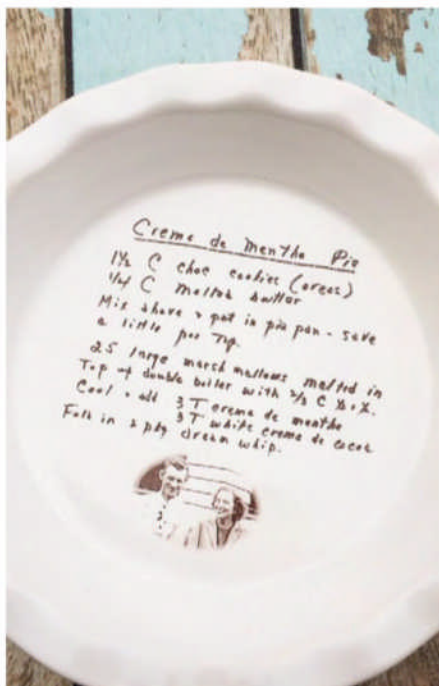 Creme de Menthe Pie
1½ C choc cookies (oreos)
1/4 C melted butter
Mix above & put in pie pan - save
a little for Top.
25 large marsh mallows melted in
Top of double boiler with 2/3 C ½ & ½.
Cool & add 3 T creme de menthe
3 T white creme de cocoa
Fold in 2 pkg dream whip.